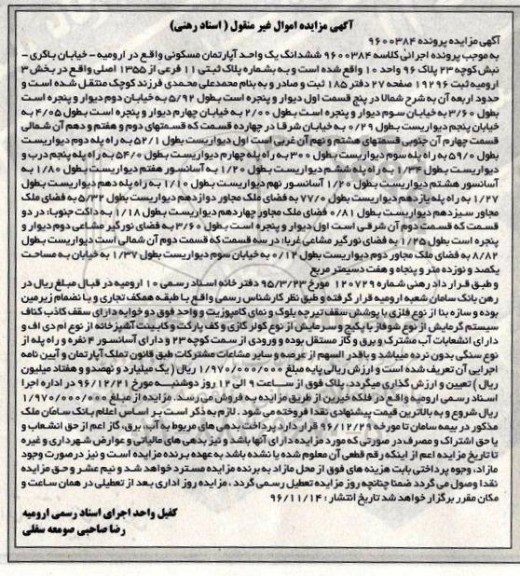 آگهی مزایده اموال غیر منقول ( اسناد رهنی)
آگهی مزایده پرونده ۹۶۰۰۳۸۴
به موجب پرونده اجرائی کلاسه ۹۶۰۰۳۸۴ ششدانگ یک واحد آپارتمان مسکونی واقع در ارومیه - خیابان باکری -
نبش کوچه ۲۳ پلاک ۹۶ واحد ۱۰ واقع شده است و به بشماره پلاک ثبتی ۱۱ فرعی از ۱۳۵۵ اصلی واقع در بخش ۳
ارومیه ثبت ۱۹۲۹۶ صفحه ۲۷ دفتر ۱۸۵ ثبت و صادر و به بنام محمدعلی محمدی فرزند کوچک منتقل شده است و
حدود اربعه آن به شرح شمالا در پنج قسمت اول دیوار و پنجره است بطول ۵/۹۲ به خیابان دوم دیوار و پنجره است
بطول ۳/۶۰ به خیابان سوم دیوار و پنجره است بطول ۲/۰۰ به خیابان چهارم دیوار و پنجره است بطول ۴/۰۵ به
خیابان پنجم دیواریست بطول ۰/۲۹ به خیابان شرقا در چهارده قسمت که قسمتهای دوم و هفتم و دهم آن شمالی
قسمت چهارم آن جنوبی قسمتهای هشتم و نهم آن غربی است اول دیواریست بطول ۵۲/۱ به راه پله دوم دیواریست
بطول ۵۹/۰ به راه پله سوم دیواریست بطول ۳۰۰ به راه پله چهارم دیواریست بطول ۵۴/۰ به راه پله پنجم درب و
دیواریست بطول به راه پله ششم دیواریست بطول ۱/۲۰ به آسانسور هفتم دیواریست بطول ۱/۸۰ به
آسانسور هشتم دیواریست بطول ۱/۲۰ آسانسور نهم دیواریست بطول ۱/۱۰ به راه پله دهم دیواریست بطول
۱/۲۷ به راه پله یازدهم دیواریست بطول ۷۷/۰ به فضای ملک مجاور دوازدهم دیواریست بطول ۵/۳۲ به فضای ملک
مجاور سیزدهم دیواریست بطول ۰/۸۱ فضای ملک مجاور چهاردهم دیواریست بطول ۱/۱۸ به داکت جنوبا: در دو
قسمت که قسمت دوم آن شرقی است اول دیوار و پنجره است بطول ۳/۶۰ به فضای نورگیر مشاعی دوم دیوار و
پنجره است بطول ۱/۲۵ به فضای نورگیر مشاعی غربا: در سه قسمت که قسمت دوم آن شمالی است دیواریست بطول
۸/۸۲ به فضای ملک مجاور دوم دیواریست بطول ۰/۱۲ به خیابان سوم دیواریست بطول ۱/۳۷ به خیابان به مساحت
یکصد و نوزده متر و پنجاه و هفت دسیمتر مربع
و طبق قرارداد رهنی شماره ۱۲۰۷۲۹ مورخ ۹۵/۳/۲۳ دفترخانه اسناد رسمی ۱۰ ارومیه در قبال مبلغ ریال در
رهن بانک سامان شعبه ارومیه قرار گرفته و طبق نظر کارشناس رسمی واقع با طبقه همکف تجاری و با نضمام زیرمین
بوده و سازه بنا از نوع فلزی با پوشش سقف تیرچه بلوک و نمای کامپوزیت و واحد فوق دو خوابه دارای سقف کاذب کناف
سیستم گرمایش از نوع شوفاژ با پکیج و سرمایش از نوع کولر گازی و کف پارکت و کابینت آشپزخانه از نوع ام دی اف و
دارای انشعابات آب مشترک و برق و گاز مستقل بوده و ورودی از سمت کوچه ۲۳ و دارای آسانسور ۴ نفره و راه پله از
نوع سنگی بدون نرده میباشد و با قدر السهم از عرصه و سایر مشاعات مشترکات طبق قانون تملک آپارتمان و آیین نامه
اجرایی آن تعریف شده است و ارزش ریالی پایه مبلغ ۱/۹۷۰/۰۰۰/۰۰۰ ریال (یک میلیارد و نهصد و هفتاد میلیون
ریال) تعیین و ارزش گذاری میگردد. پلاک فوق از ساعت ۹ الی ۱۲ روز دوشنبه مورخ ۹۶/۱۲/۲۱ در اداره اجرا
اسناد رسمی ارومیه واقع در فلکه خیرین از طریق مزایده به فروش میرسد. مزایده از مبلغ ۱/۹۷۰/۰۰۰/۰۰۰
ریال شروع و به بالاترین قیمت پیشنهادی نقدا فروخته می شود . لازم به ذکر است بر اساس اعلام بانک سامان ملک
مذکور در بیمه سامان تا مورخه ۹۶/۱۲/۲۹ قرار دارد پرداخت بدهی های مربوط به آب، برق، گاز اعم از حق انشعاب و
یا حق اشتراک و مصرف در صورتی که مورد مزایده دارای آنها باشد و نیز بدهی های مالیاتی و عوارض شهرداری و غیره
تا تاریخ مزایده اعم از اینکه رقم قطعی آن معلوم شده یا نشده باشد به عهده برنده مزایده است و نیز در صورت وجود
مازاد، وجوه پرداختی بابت هزینه های فوق از محل مازاد به برنده مزایده مسترد خواهد شد و نیم عشر و حق مزایده
نقدا وصول می گردد ضمنا چنانچه روز مزایده تعطیل رسمی گردد ، مزایده روز اداری بعد از تعطیلی در همان ساعت و
مکان مقرر برگزار خواهد شد تاریخ انتشار : ۹۶/۱۱/۱۴
کفیل واحد اجرای اسناد رسمی ارومیه
رضا صاحبی صومعه سفلی